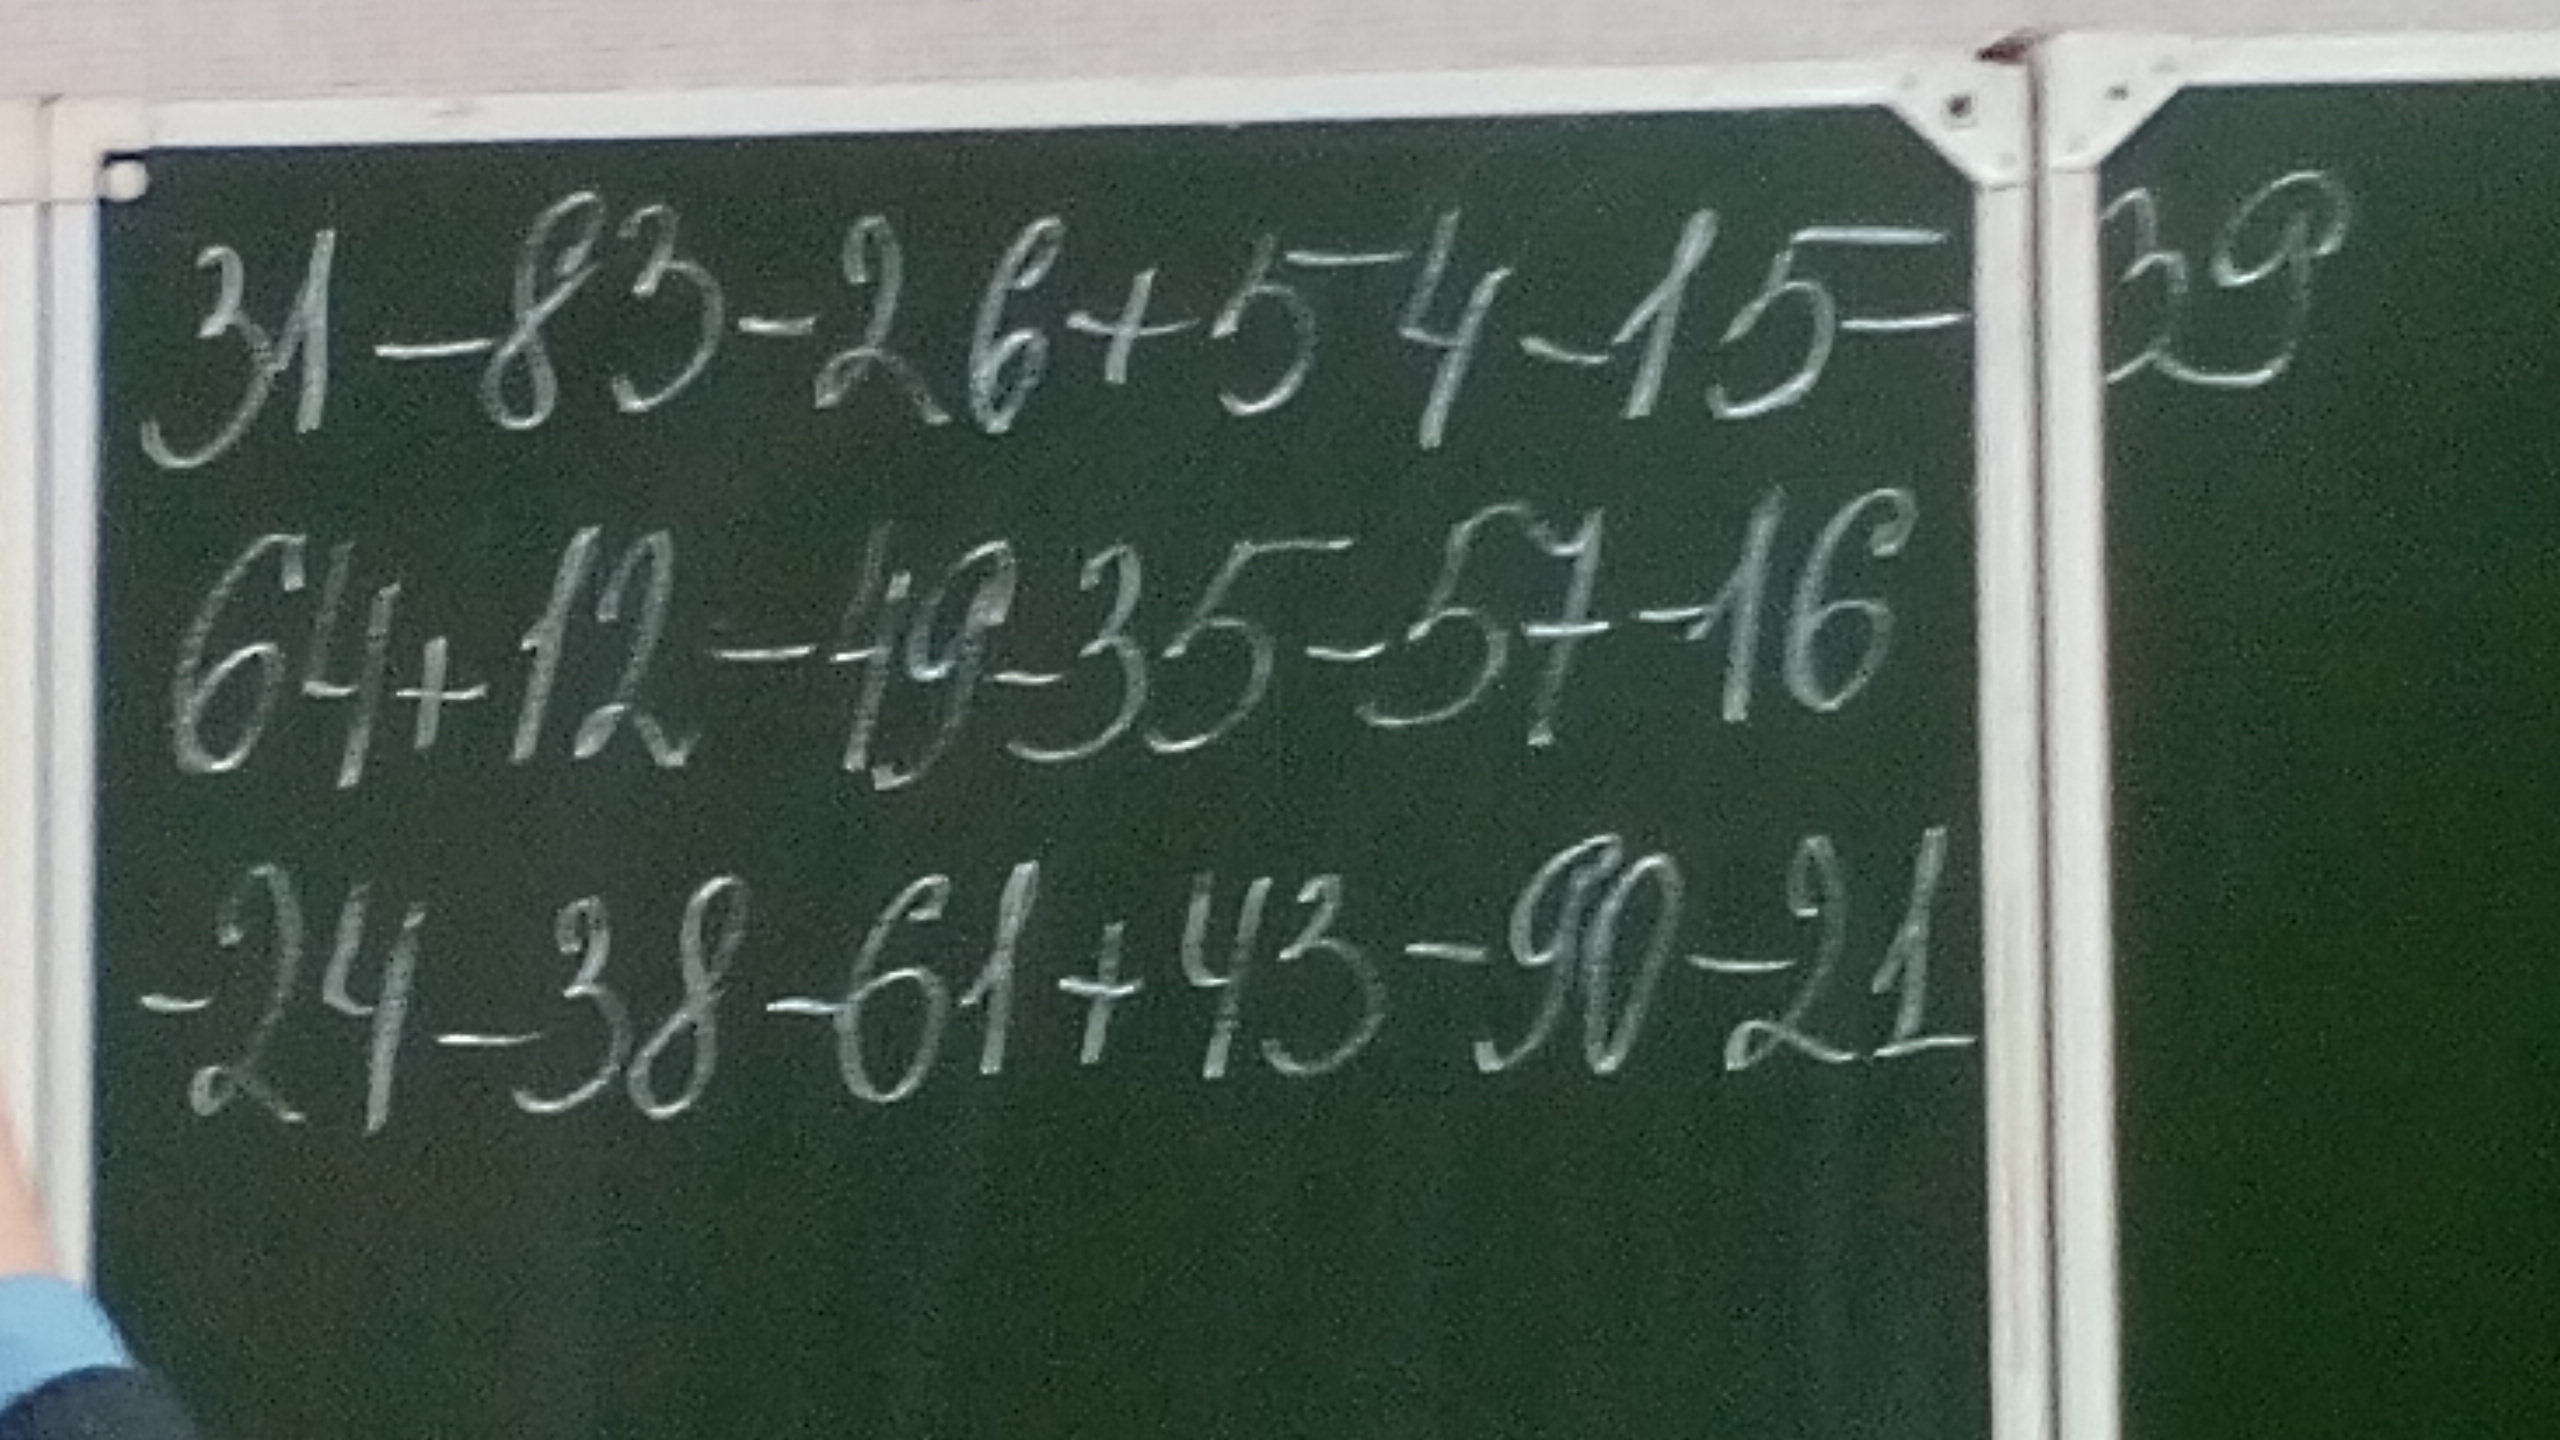 31-83-26+54-15= 39
64+12-49-35-57-16
-24-38-61+43-90-21